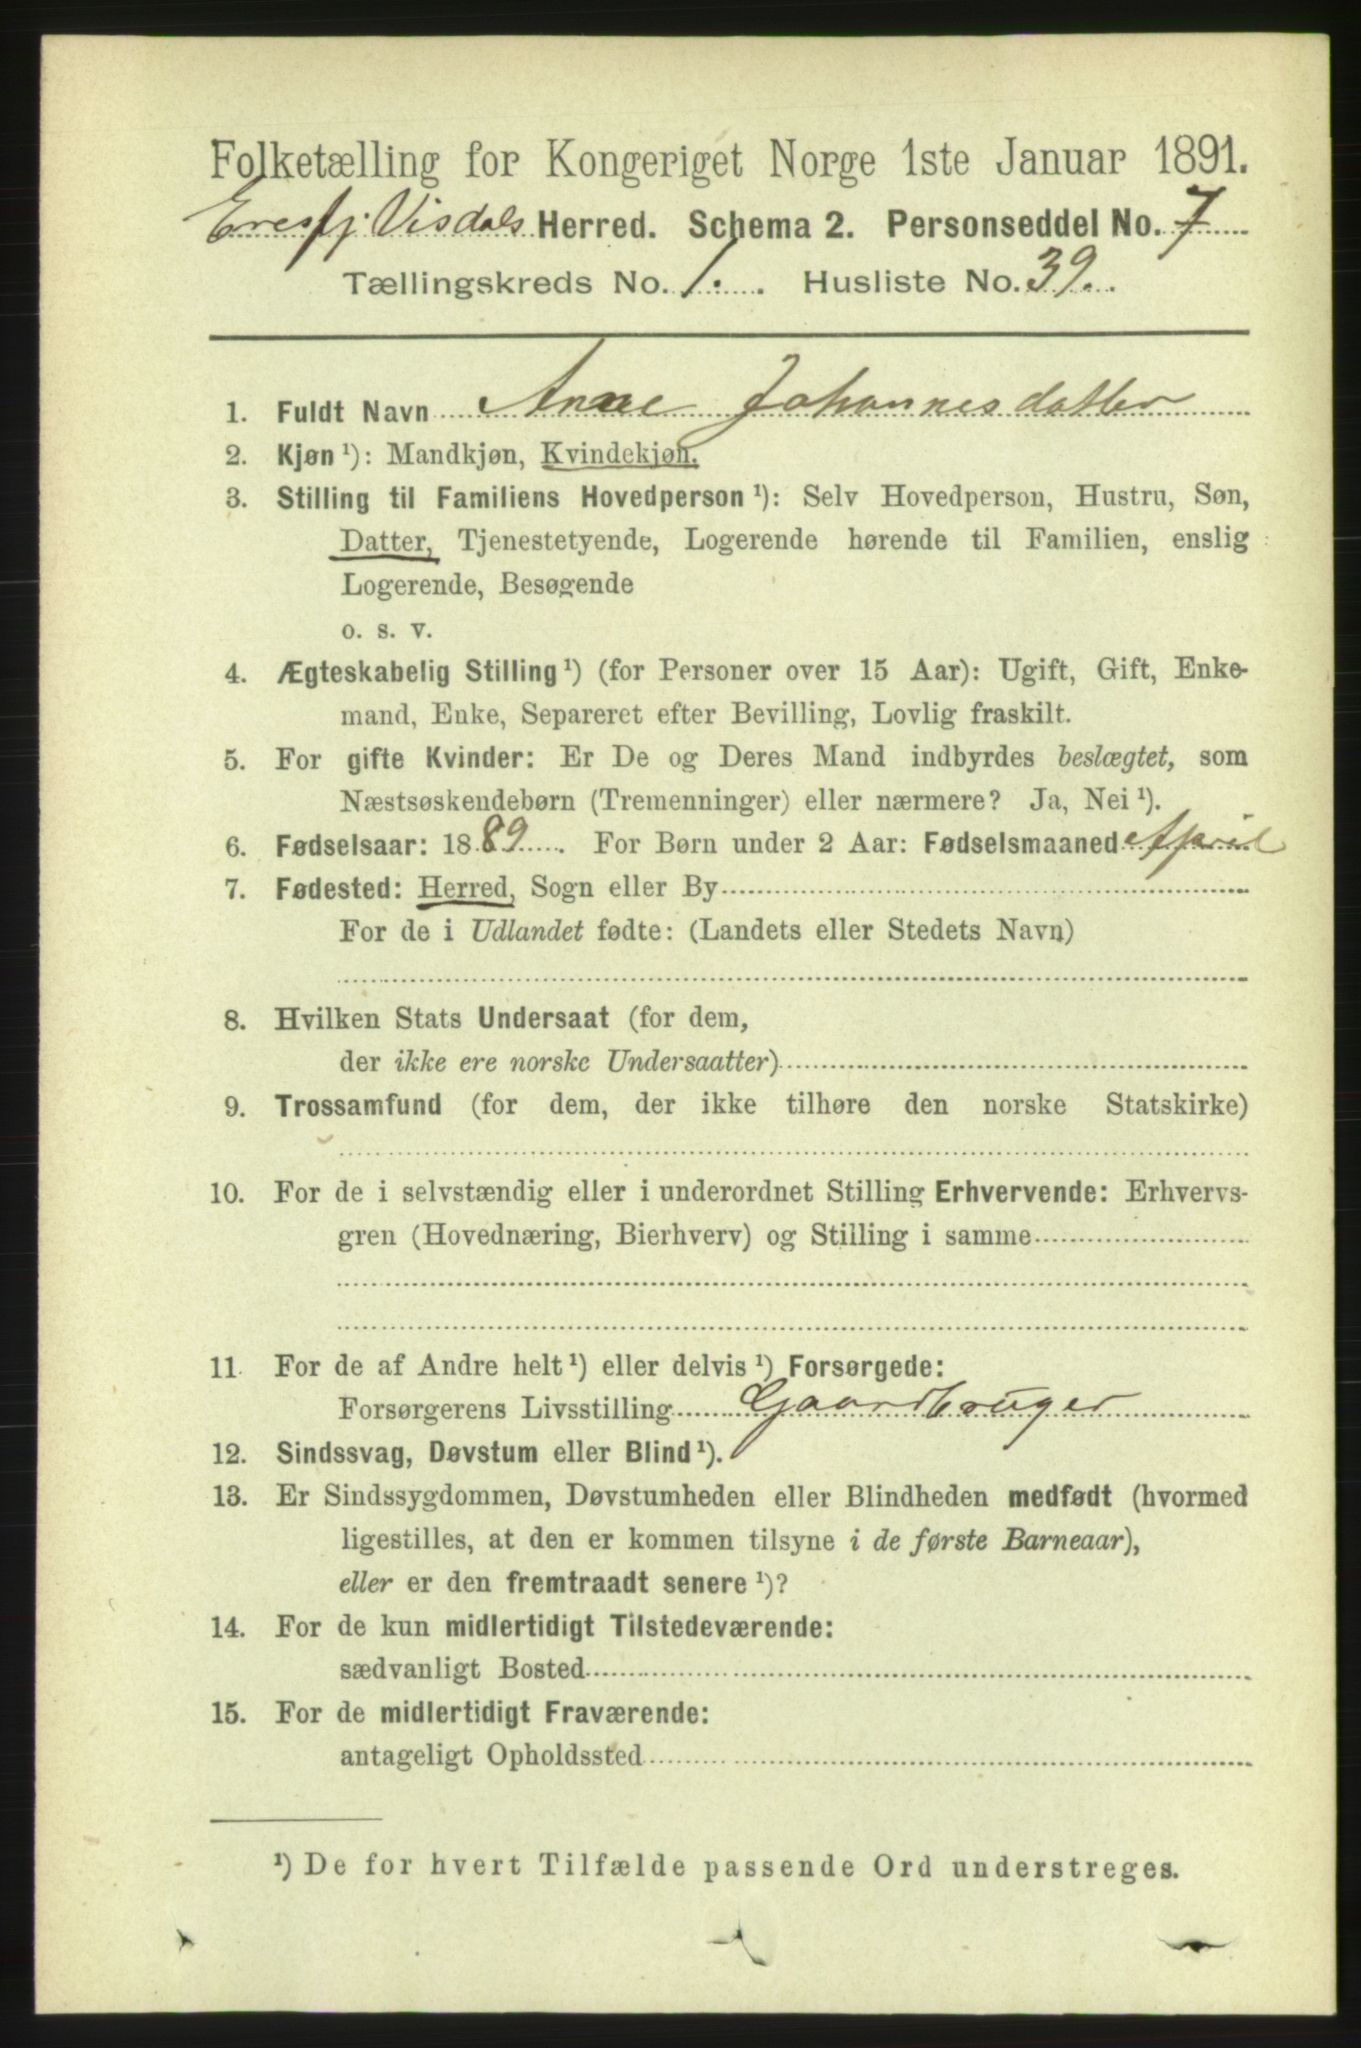 Folketælling for Kongeriget Norge 1ste Januar 1891.
Eresfj. Visdals Herred. Schema 2. Personseddel No. 7
Tællingskreds No. 1. Husliste No. 39.
1. Fuldt Navn Anne Johannesdatter
2. Kjøn ¹): Mandkjøn, Kvindekjøn.
3. Stilling til Familiens Hovedperson ¹): Selv Hovedperson, Hustru, Søn,
Datter, Tjenestetyende, Logerende hørende til Familien, enslig
Logerende, Besøgende
o. s. v.
4. Ægteskabelig Stilling ¹) (for Personer over 15 Aar): Ugift, Gift, Enke-
mand, Enke, Separeret efter Bevilling, Lovlig fraskilt.
5. For gifte Kvinder: Er De og Deres Mand indbyrdes beslægtet, som
Næstsøskendebørn (Tremenninger) eller nærmere? Ja, Nei ¹).
6. Fødselsaar: 1889. For Børn under 2 Aar: Fødselsmaaned April
7. Fødested: Herred, Sogn eller By
For de i Udlandet fødte: (Landets eller Stedets Navn)
8. Hvilken Stats Undersaat (for dem,
der ikke ere norske Undersaatter)
9. Trossamfund (for dem, der ikke tilhøre den norske Statskirke)
10. For de i selvstændig eller i underordnet Stilling Erhvervende: Erhvervs-
gren (Hovednæring, Bierhverv) og Stilling i samme
11. For de af Andre helt ¹) eller delvis ¹) Forsørgede:
Forsørgerens Livsstilling Gaardbruger
12. Sindssvag, Døvstum eller Blind ¹).
13. Er Sindssygdommen, Døvstumheden eller Blindheden medfødt (hvormed
ligestilles, at den er kommen tilsyne i de første Barneaar),
eller er den fremtraadt senere ¹)?
14. For de kun midlertidigt Tilstedeværende:
sædvanligt Bosted
15. For de midlertidigt Fraværende:
antageligt Opholdssted
¹) De for hvert Tilfælde passende Ord understreges.